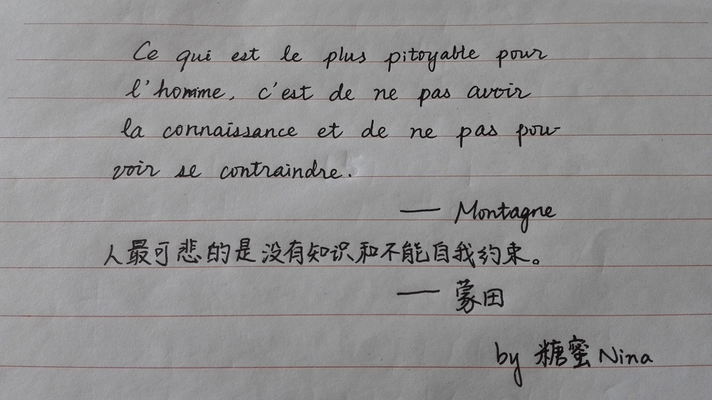 Ce qui est le plus pitoyable pour
l'homme, c'est de ne pas avoir
la connaissance et de ne pas pou-
voir se contraindre.
— Montagne
人最可悲的是没有知识和不能自我约束。
— 蒙田
by 糖蜜 Nina